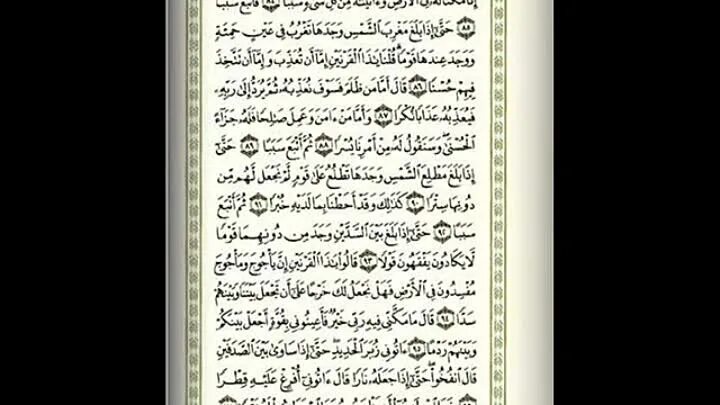 إِنَّا مَكَّنَّا لَهُۥ فِي ٱلْأَرْضِ وَءَاتَيْنَٰهُ مِن كُلِّ شَيْءٍ سَبَبًا ٨٤ فَأَتْبَعَ سَبَبًا
٨٥ حَتَّىٰٓ إِذَا بَلَغَ مَغْرِبَ ٱلشَّمْسِ وَجَدَهَا تَغْرُبُ فِي عَيْنٍ حَمِئَةٍ
وَوَجَدَ عِندَهَا قَوْمًا قُلْنَا يَٰذَا ٱلْقَرْنَيْنِ إِمَّآ أَن تُعَذِّبَ وَإِمَّآ أَن تَتَّخِذَ
فِيهِمْ حُسْنًا ٨٦ قَالَ أَمَّا مَن ظَلَمَ فَسَوْفَ نُعَذِّبُهُۥ ثُمَّ يُرَدُّ إِلَىٰ رَبِّهِۦ
فَيُعَذِّبُهُۥ عَذَابًا نُّكْرًا ٨٧ وَأَمَّا مَنْ ءَامَنَ وَعَمِلَ صَٰلِحًا فَلَهُۥ جَزَآءً
ٱلْحُسْنَىٰ وَسَنَقُولُ لَهُۥ مِنْ أَمْرِنَا يُسْرًا ٨٨ ثُمَّ أَتْبَعَ سَبَبًا ٨٩ حَتَّىٰٓ
إِذَا بَلَغَ مَطْلِعَ ٱلشَّمْسِ وَجَدَهَا تَطْلُعُ عَلَىٰ قَوْمٍ لَّمْ نَجْعَل لَّهُم مِّن
دُونِهَا سِتْرًا ٩٠ كَذَٰلِكَ وَقَدْ أَحَطْنَا بِمَا لَدَيْهِ خُبْرًا ٩١ ثُمَّ أَتْبَعَ
سَبَبًا ٩٢ حَتَّىٰٓ إِذَا بَلَغَ بَيْنَ ٱلسَّدَّيْنِ وَجَدَ مِن دُونِهِمَا قَوْمًا
لَّا يَكَادُونَ يَفْقَهُونَ قَوْلًا ٩٣ قَالُوا۟ يَٰذَا ٱلْقَرْنَيْنِ إِنَّ يَأْجُوجَ وَمَأْجُوجَ
مُفْسِدُونَ فِي ٱلْأَرْضِ فَهَلْ نَجْعَلُ لَكَ خَرْجًا عَلَىٰٓ أَن تَجْعَلَ بَيْنَنَا وَبَيْنَهُمْ
سَدًّا ٩٤ قَالَ مَا مَكَّنِّي فِيهِ رَبِّي خَيْرٌ فَأَعِينُونِي بِقُوَّةٍ أَجْعَلْ بَيْنَكُمْ
وَبَيْنَهُمْ رَدْمًا ٩٥ ءَاتُونِي زُبَرَ ٱلْحَدِيدِ حَتَّىٰٓ إِذَا سَاوَىٰ بَيْنَ ٱلصَّدَفَيْنِ
قَالَ ٱنفُخُوا۟ حَتَّىٰٓ إِذَا جَعَلَهُۥ نَارًا قَالَ ءَاتُونِيٓ أُفْرِغْ عَلَيْهِ قِطْرًا